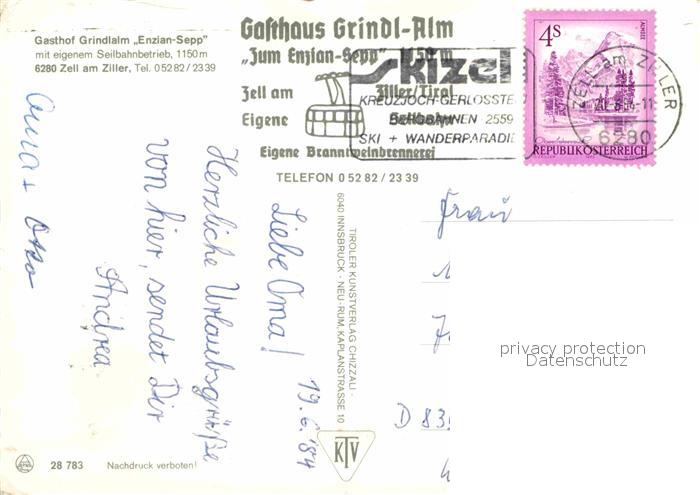 Gasthof Grindlalm „Enzian-Sepp"
mit eigenem Seilbahnbetrieb, 1150 m
6280 Zell am Ziller, Tel. 05282/2339
Gasthaus Grindl-Alm
„Zum Enzian-Sepp"
Zell am Ziller/Tirol
Eigene
Eigene Branntweinbrennerei
TELEFON 0 52 82 / 23 39
skizel
KREUZJOCH-GERLOSSTE
BERGBAHNEN 2559
SKI + WANDERPARADIE
4S
REPUBLIK ÖSTERREICH
ZELL am ZILLER
6280
19.6.84
Liebe Oma!
Herzliche Urlaubsgrüße
von hier, sendet Dir
Andrea.
Oma + Otto
TIROLER KUNSTVERLAG CHIZZALI ·
6040 INNSBRUCK · NEU-RUM, KAPLANSTRASSE 10
KTV
Frau
D 83
privacy protection
Datenschutz
28 783 Nachdruck verboten!